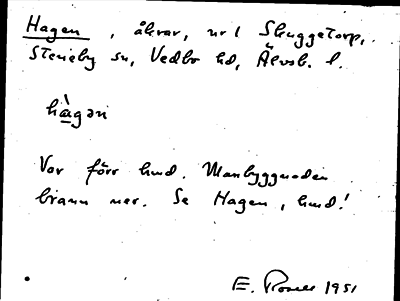 Hagen, åkrar, nr 1 Skuggetorp,
Steneby sn, Vedbo hd, Älvsb. l.
hàgən
Var förr hmd. Manbyggnaden
brann ner. Se Hagen, hmd!
E. 1951